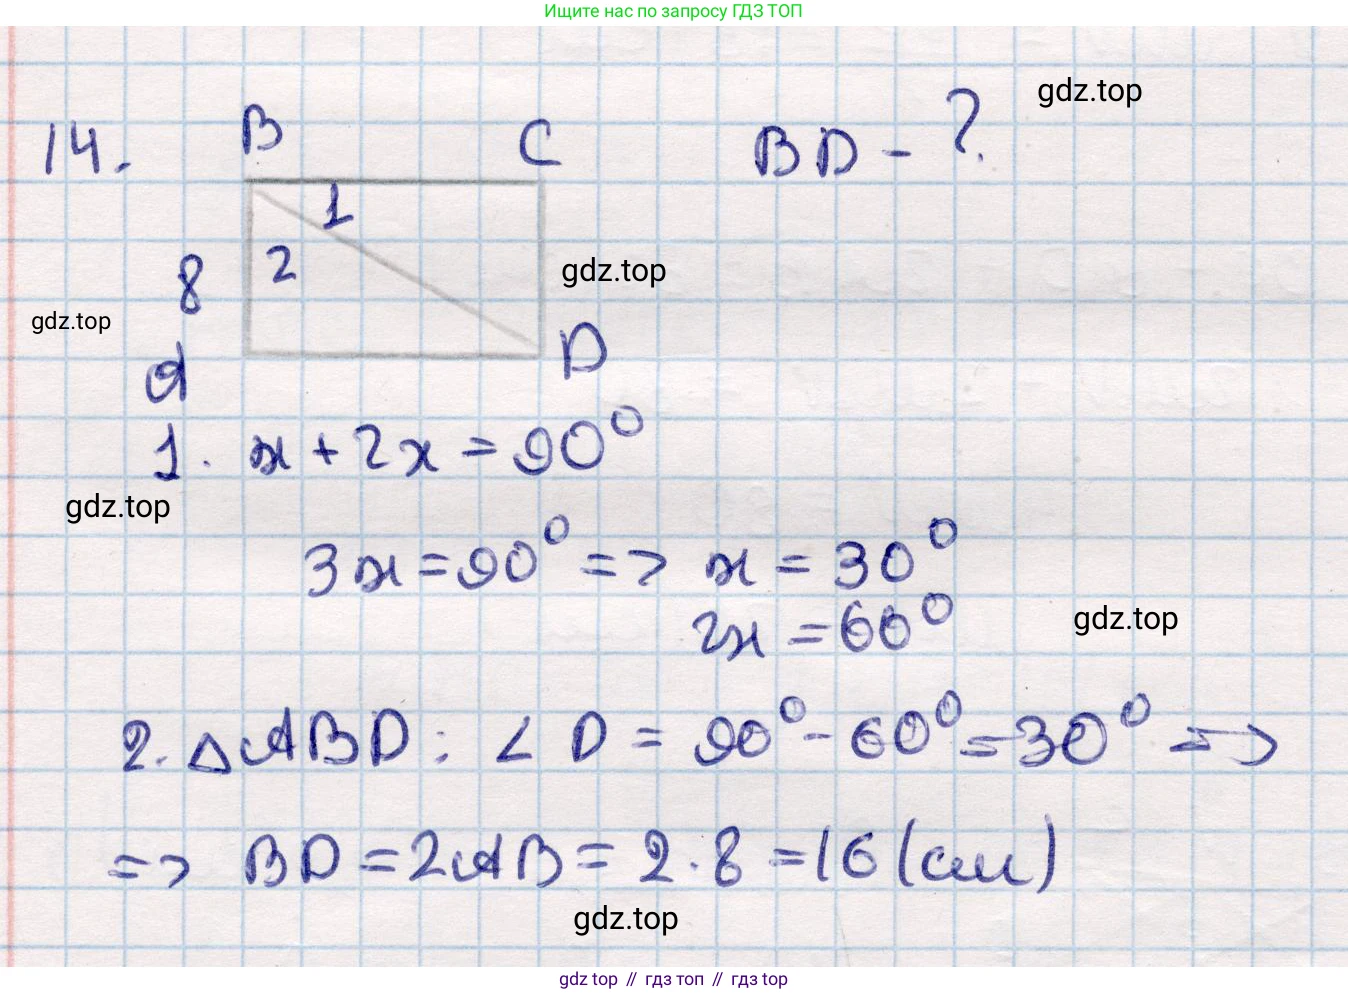 Ищите нас по запросу ГДЗ ТОП
gdz.top
14. B C BD - ?
1
2
8
gdz.top
gdz.top
A D
1. x + 2x = 90°
gdz.top
3x = 90° => x = 30°
2x = 60°
gdz.top
2. △ABD: ∠D = 90° - 60° = 30° =>
=> BD = 2AB = 2 · 8 = 16 (см)
gdz.top
gdz top // гдз топ // гдз top